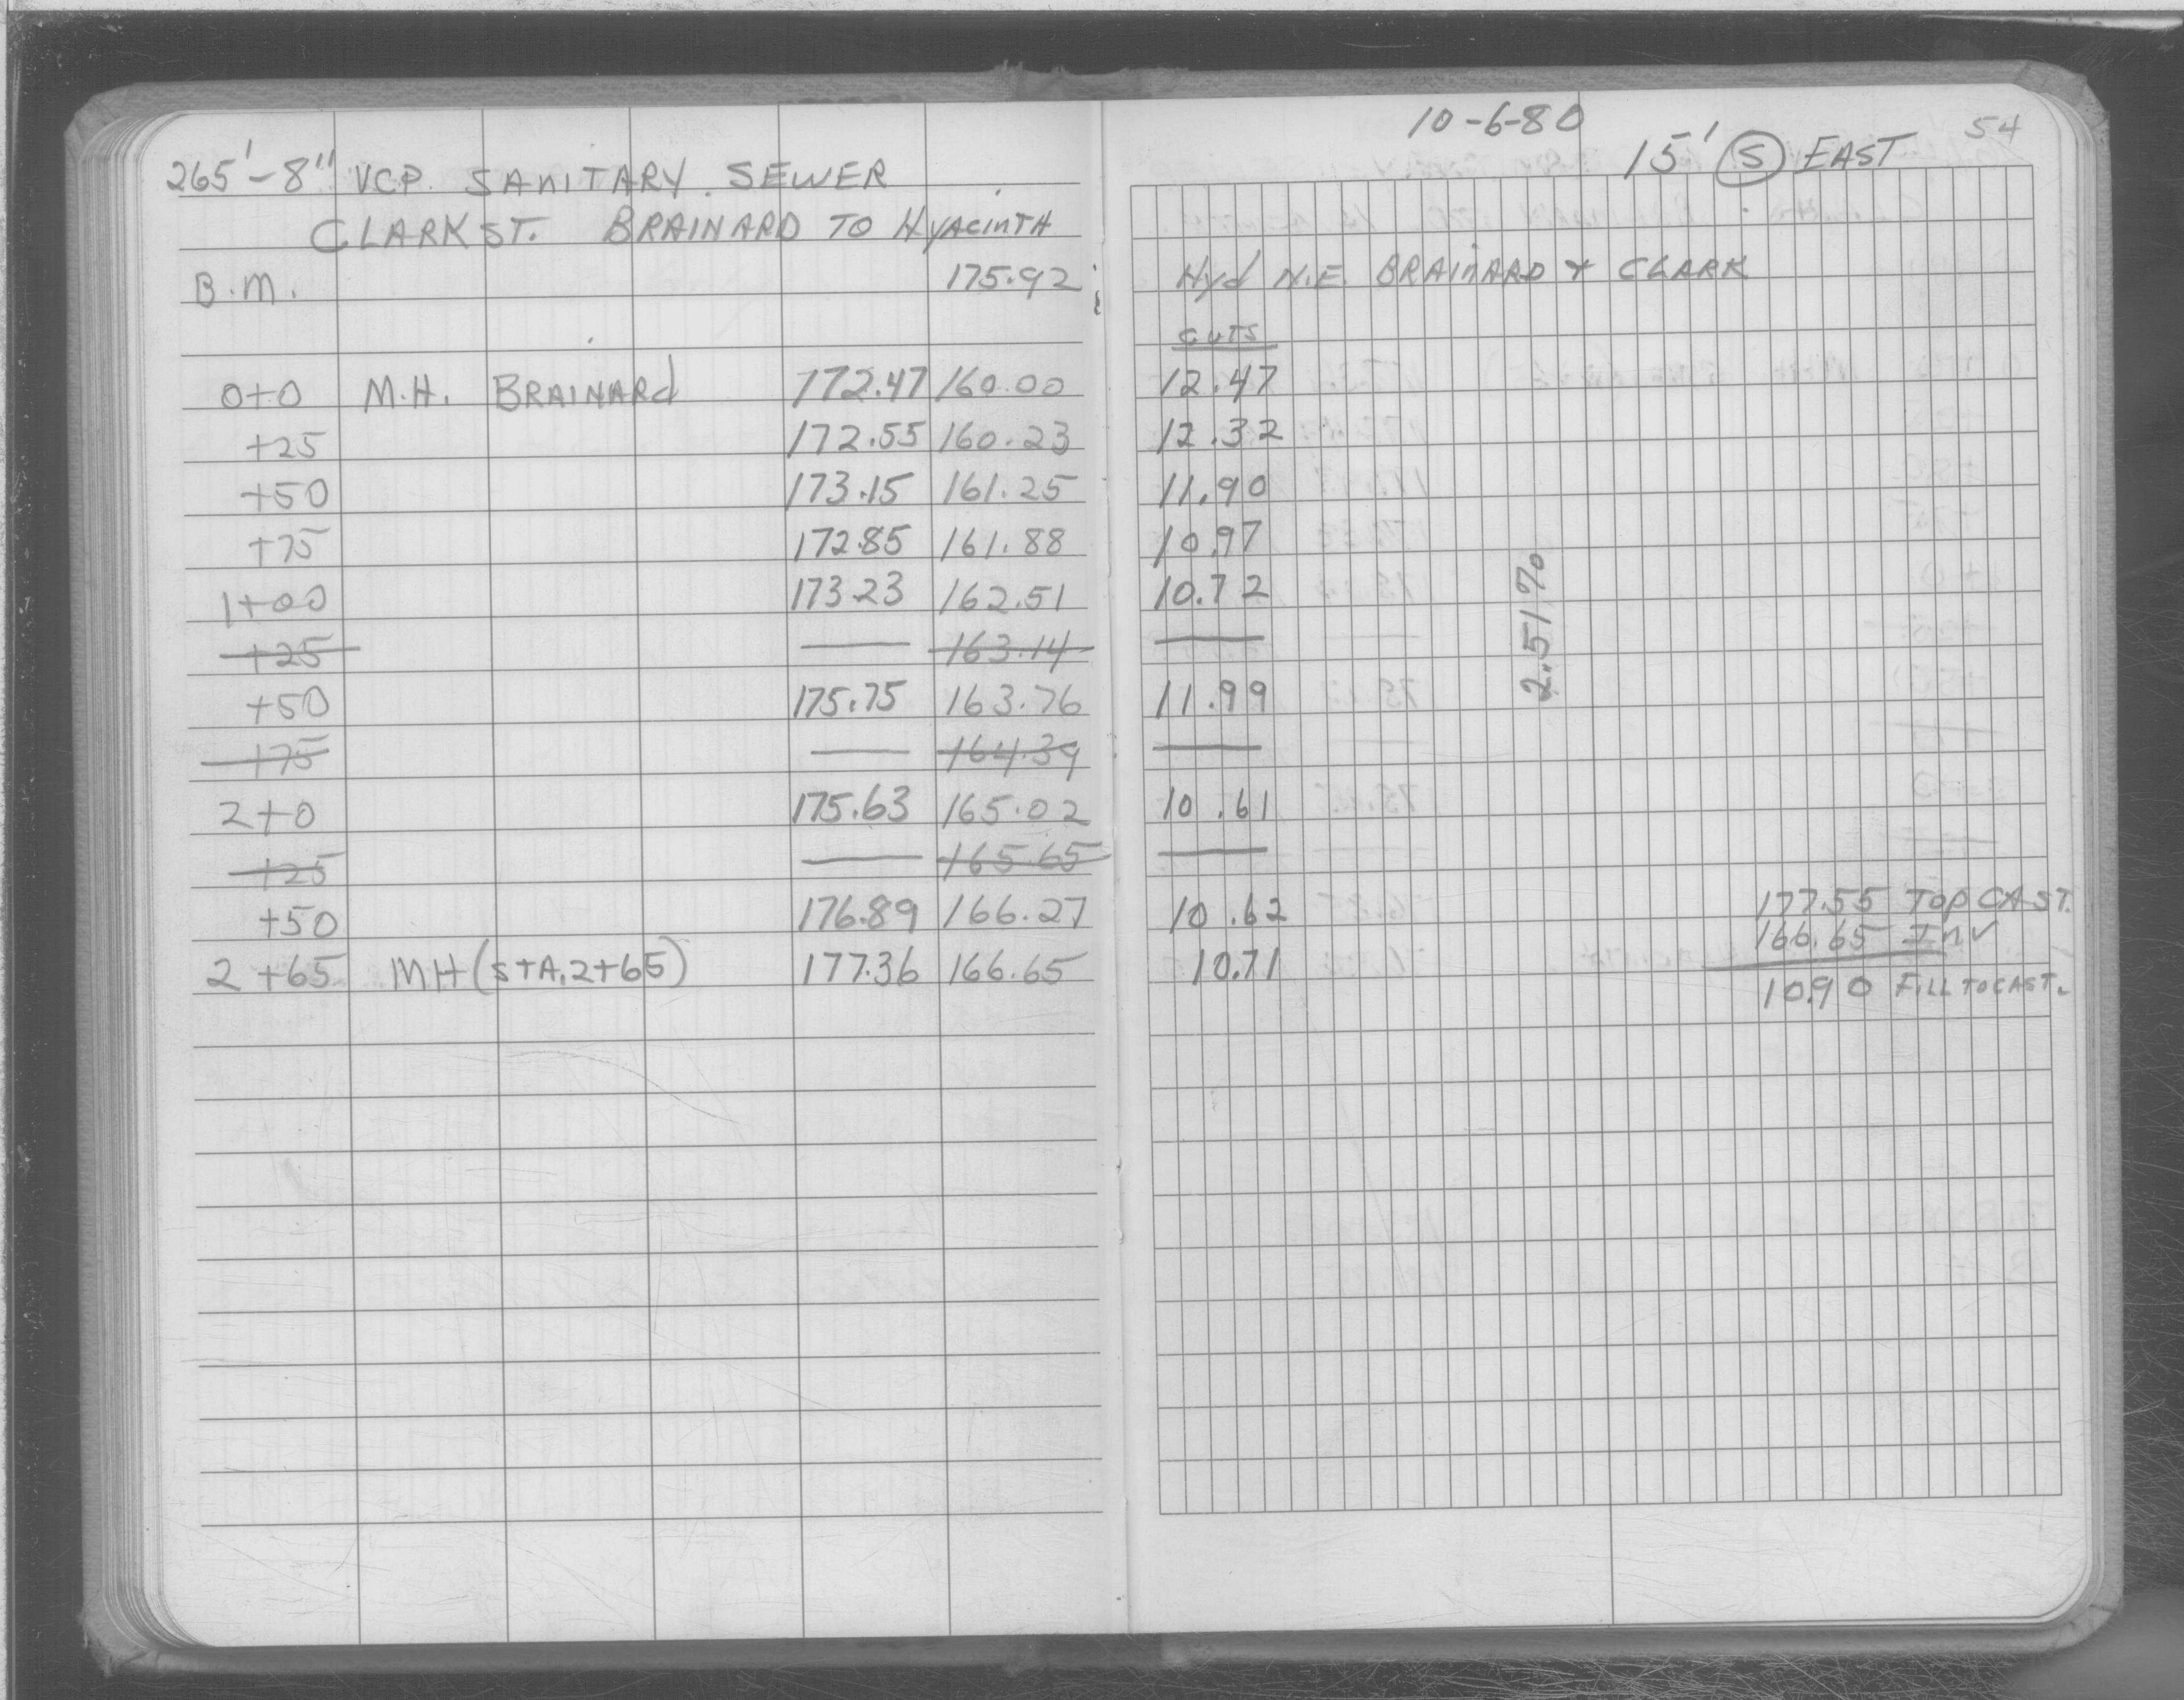 265'-8" VCP. SANITARY. SEWER
CLARK ST. BRAINARD TO HYACINTH
B.M. 175.92
0+0 M.H. BRAINARd 172.47 160.00
+25 172.55 160.23
+50 173.15 161.25
+75 172.85 161.88
1+00 173.23 162.51
+25 — 163.14
+50 175.75 163.76
+75 — 164.39
2+0 175.63 165.02
+25 — 165.65
+50 176.89 166.27
2+65 MH (STA. 2+65) 177.36 166.65
10-6-80
54
15' (S) EAST
Hyd N.E. BRAINARD + CLARK
CUTS
12.47
12.32
11.90
10.97
10.72
—
11.99
—
10.61
—
10.62
10.71
2.51%
177.55 TOP CAST.
166.65 Inv
10.90 FILL TO CAST.